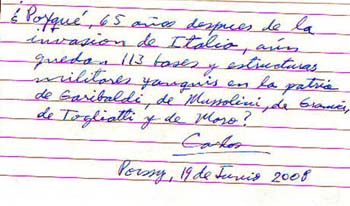 ¿Porqué, 65 años despues de la
invasion de Italia, aún
quedan 113 bases y estructuras
militares yanquis en la patria
de Garibaldi, de Mussolini, de Gramsci,
de Togliatti y de Moro?
Carlos
Poissy, 19 de Junio 2008